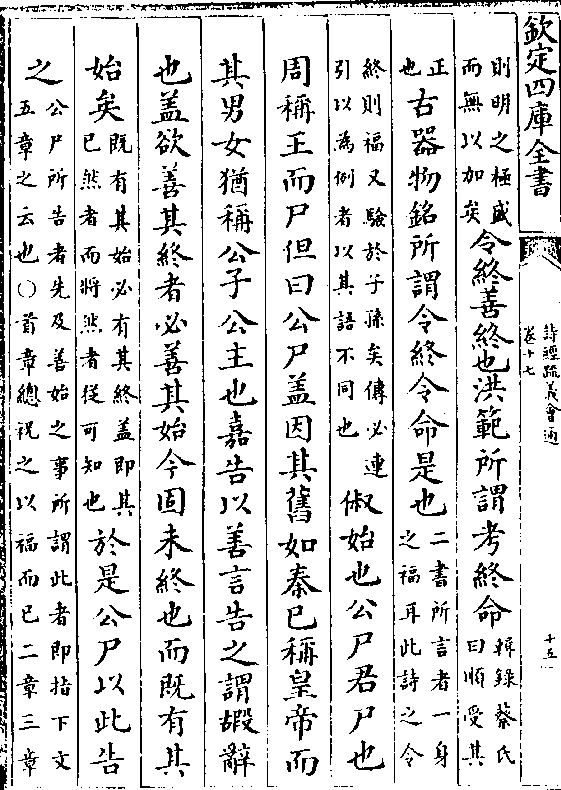 欽定四庫全書
詩經疏義會通
卷十七
十五
則明之極盛
而無以加矣
令終善終也洪範所謂考終命
輯錄蔡氏
曰順受其
正
也
古器物銘所謂令終令命是也
二書所言者一身
之福耳此詩之令
終則福又驗於子孫矣傳必連
引以為例者以其語不同也
俶始也公尸君尸也
周稱王而尸但曰公尸盖因其舊如秦已稱皇帝而
其男女猶稱公子公主也嘉告以善言告之謂嘏辭
也盖欲善其終者必善其始今固未終也而既有其
始矣
既有其始必有其終盖即其
已然者而將然者從可知也
於是公尸以此告
之
公尸所告者先及善始之事所謂此者即指下文
五章之云也○首章總祝之以福而已二章三章